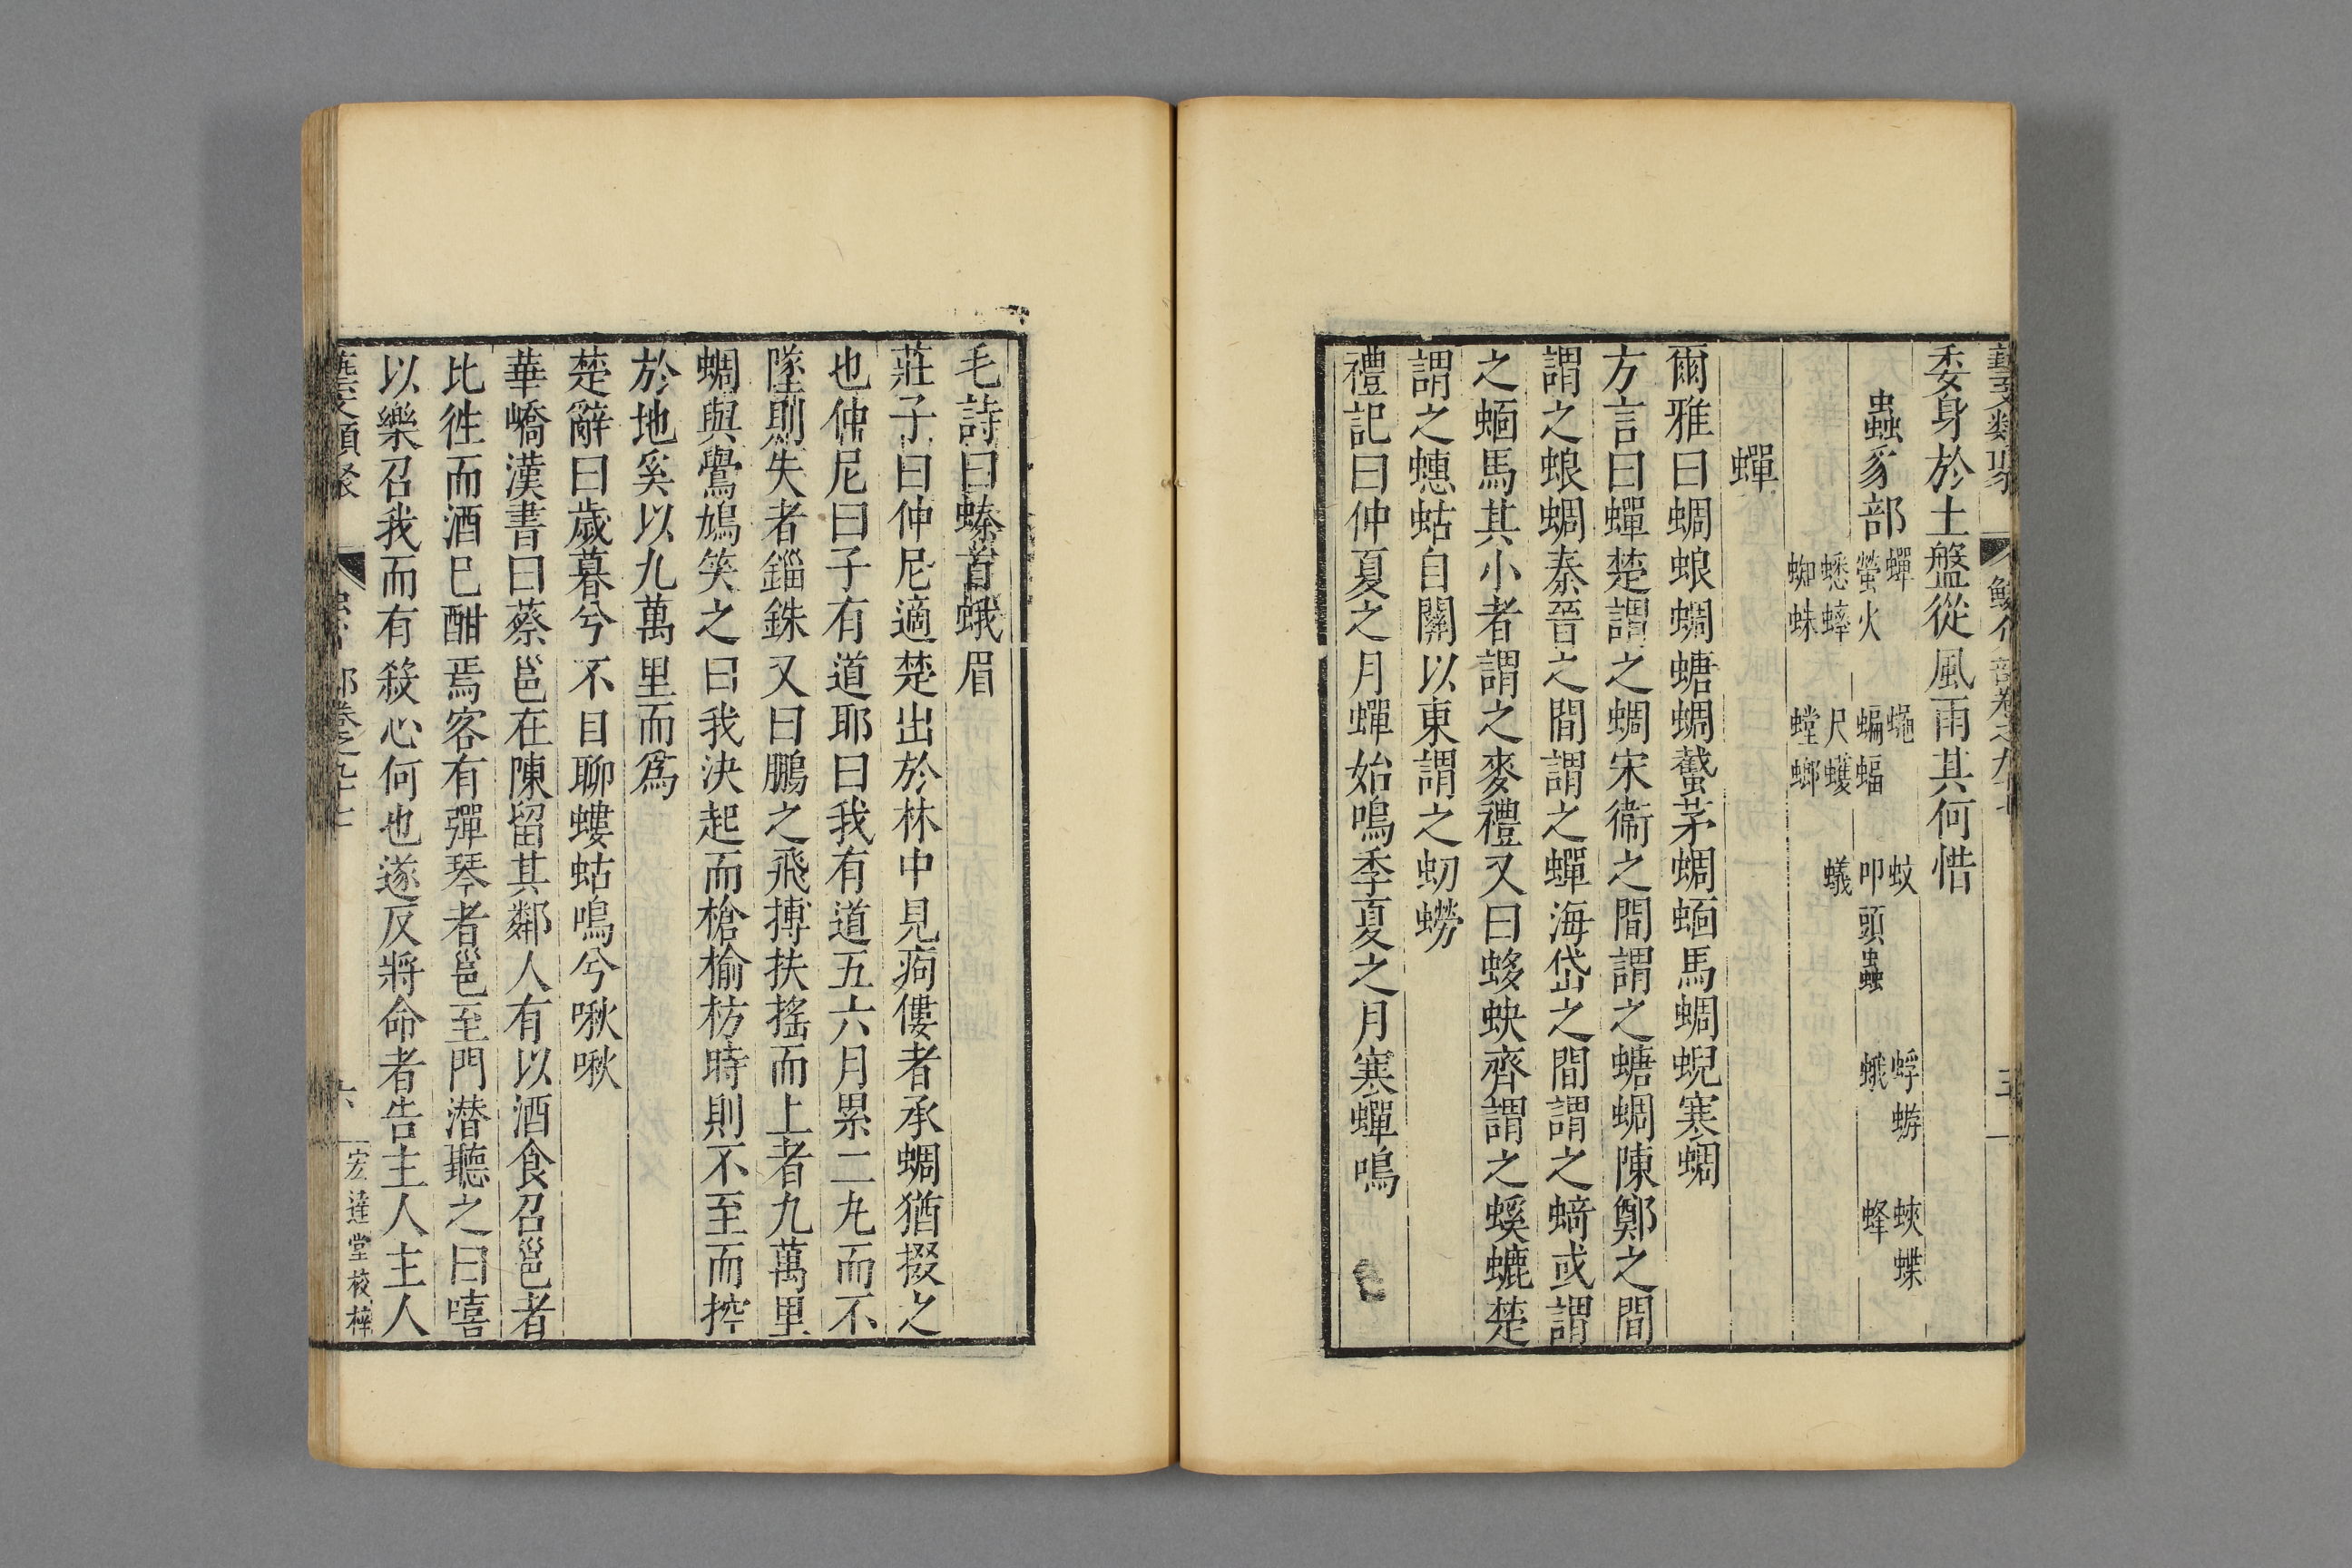 藝文類聚 鱗介部卷之九十七 五
委身於土盤從風雨其何惜
蟲豸部 蟬 蠅 蚊 蜉蝣 蛺蝶
螢火 蝙蝠 叩頭蟲 蛾 蜂
蟋蟀 尺蠖 蟻
蜘蛛 螳螂
蟬
爾雅曰蜩蜋蜩螗蜩蠽茅蜩蝒馬蜩蜺寒蜩
方言曰蟬楚謂之蜩宋衞之間謂之螗蜩陳鄭之間
謂之蜋蜩秦晉之間謂之蟬海岱之間謂之蛴或謂
之蝒馬其小者謂之麥禮又曰蛥蚗齊謂之螇螰楚
謂之蟪蛄自關以東謂之蚏蟧
禮記曰仲夏之月蟬始鳴季夏之月寒蟬鳴
毛詩曰螓首蛾眉
莊子曰仲尼適楚出於林中見痀僂者承蜩猶掇之
也仲尼曰子有道耶曰我有道五六月累二丸而不
墜則失者錙銖又曰鵬之飛搏扶搖而上者九萬里
蜩與鷽鳩笑之曰我決起而槍榆枋時則不至而控
於地奚以九萬里而爲
楚辭曰歲暮兮不自聊螻蛄鳴兮啾啾
華嶠漢書曰蔡邕在陳留其鄰人有以酒食召邕者
比徃而酒已酣焉客有彈琴者邕至門潛聽之曰嘻
以樂召我而有殺心何也遂反將命者告主人主人
藝文類聚 部卷之九十七 六 宏達堂校梓